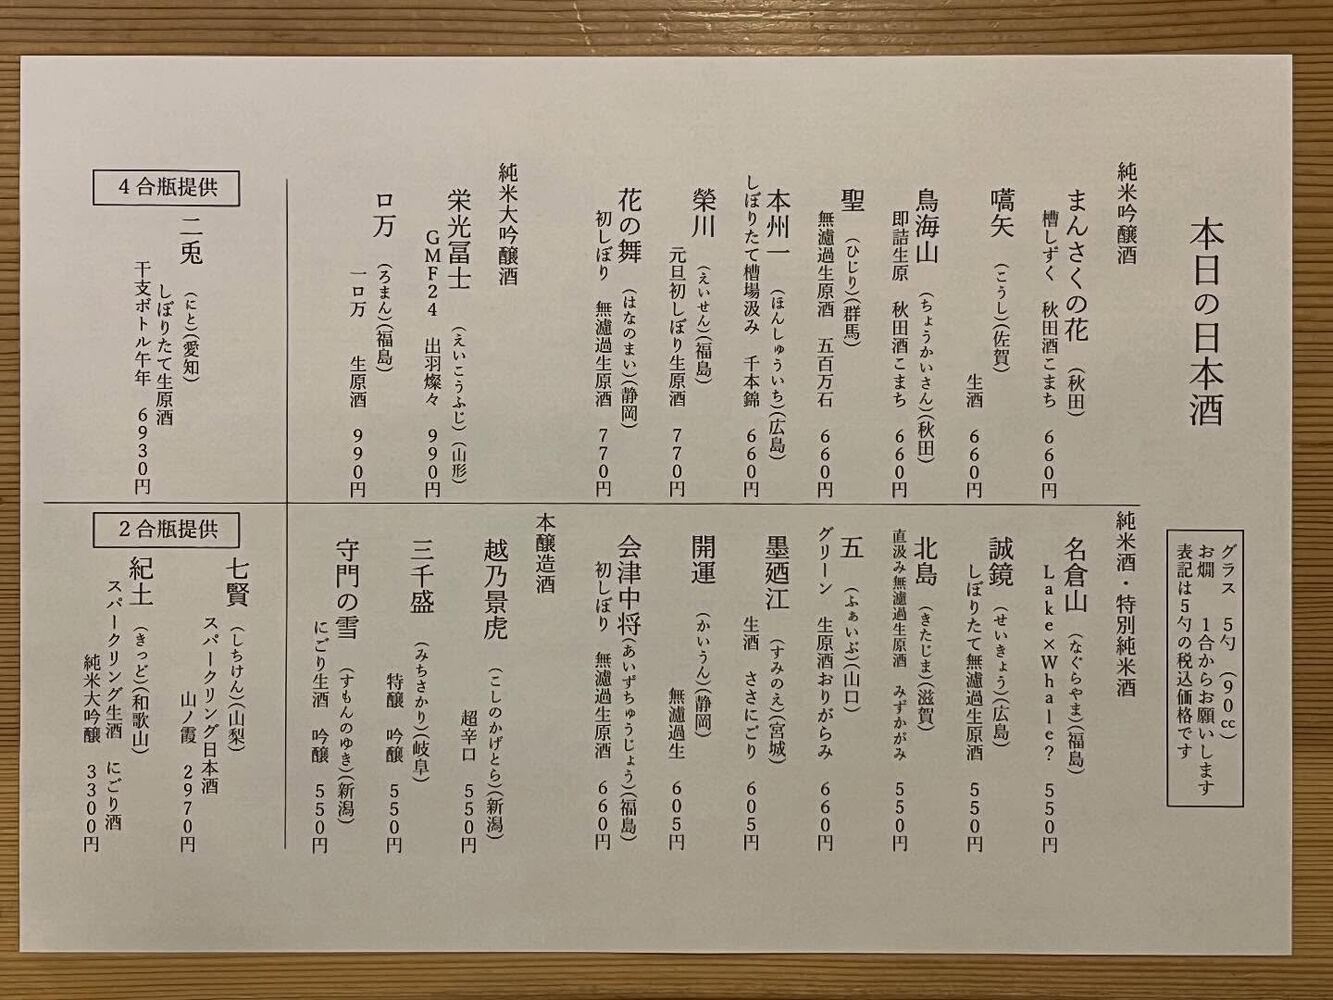 本日の日本酒
グラス　5勺　(90cc)
お燗　1合からお願いします
表記は5勺の税込価格です
純米吟醸酒
まんさくの花　(秋田)
槽しずく　秋田酒こまち　660円
嚆矢　(こうし)(佐賀)
生酒　660円
鳥海山　(ちょうかいさん)(秋田)
即詰生原　秋田酒こまち　660円
聖　(ひじり)(群馬)
無濾過生原酒　五百万石　660円
本州一　(ほんしゅういち)(広島)
しぼりたて槽場汲み　千本錦　660円
榮川　(えいせん)(福島)
元旦初しぼり生原酒　770円
花の舞　(はなのまい)(静岡)
初しぼり　無濾過生原酒　770円
純米大吟醸酒
栄光冨士　(えいこうふじ)(山形)
GMF24　出羽燦々　990円
ロ万　(ろまん)(福島)
一ロ万　生原酒　990円
純米酒・特別純米酒
名倉山　(なぐらやま)(福島)
Lake×Whale?　550円
誠鏡　(せいきょう)(広島)
しぼりたて無濾過生原酒　550円
北島　(きたじま)(滋賀)
直汲み無濾過生原酒　みずかがみ　550円
五　(ふぁいぶ)(山口)
グリーン　生原酒おりがらみ　660円
墨廼江　(すみのえ)(宮城)
生酒　ささにごり　605円
開運　(かいうん)(静岡)
無濾過生　605円
会津中将(あいずちゅうじょう)(福島)
初しぼり　無濾過生原酒　660円
本醸造酒
越乃景虎　(こしのかげとら)(新潟)
超辛口　550円
三千盛　(みちさかり)(岐阜)
特醸　吟醸　550円
守門の雪　(すもんのゆき)(新潟)
にごり生酒　吟醸　550円
4合瓶提供
二兎　(にと)(愛知)
しぼりたて生原酒
干支ボトル午年　6930円
2合瓶提供
七賢　(しちけん)(山梨)
スパークリング日本酒
山ノ霞　2970円
紀土　(きっど)(和歌山)
スパークリング生酒　にごり酒
純米大吟醸　3300円